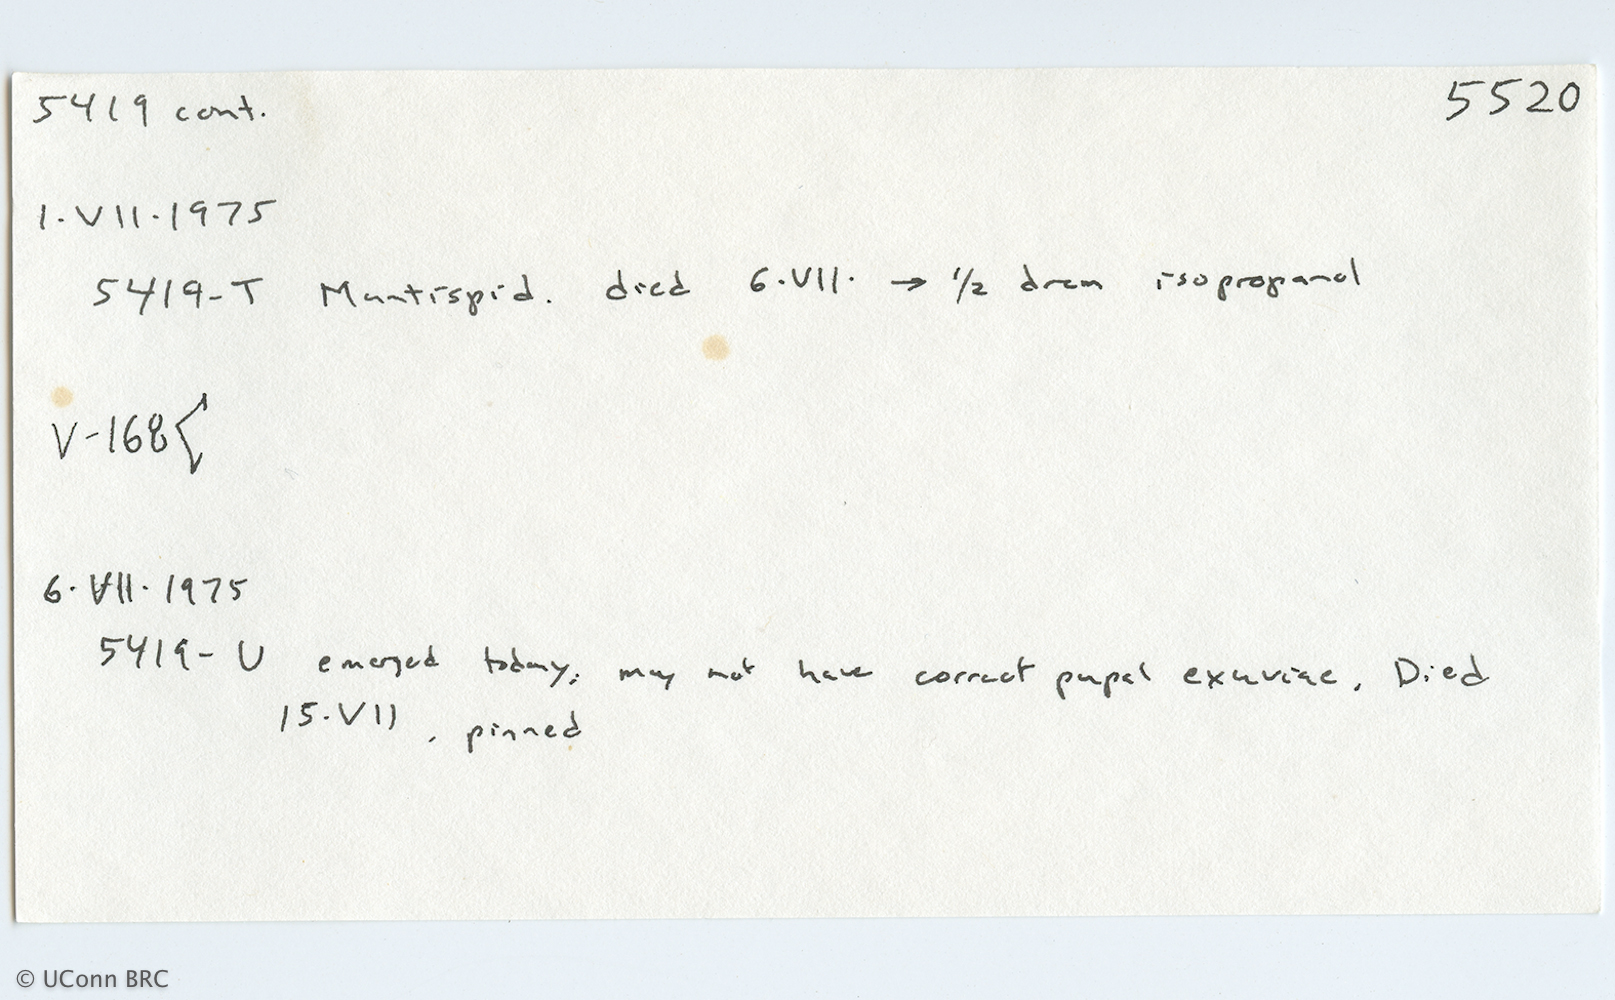 5419 cont.
5520
1.VII.1975
5419-T Mantispid. died 6.VII. → 1/2 dram isopropanol
V-168{
6.VII.1975
5419-U emerged today; may not have correct pupal exuviae. Died
15.VII, pinned
© UConn BRC